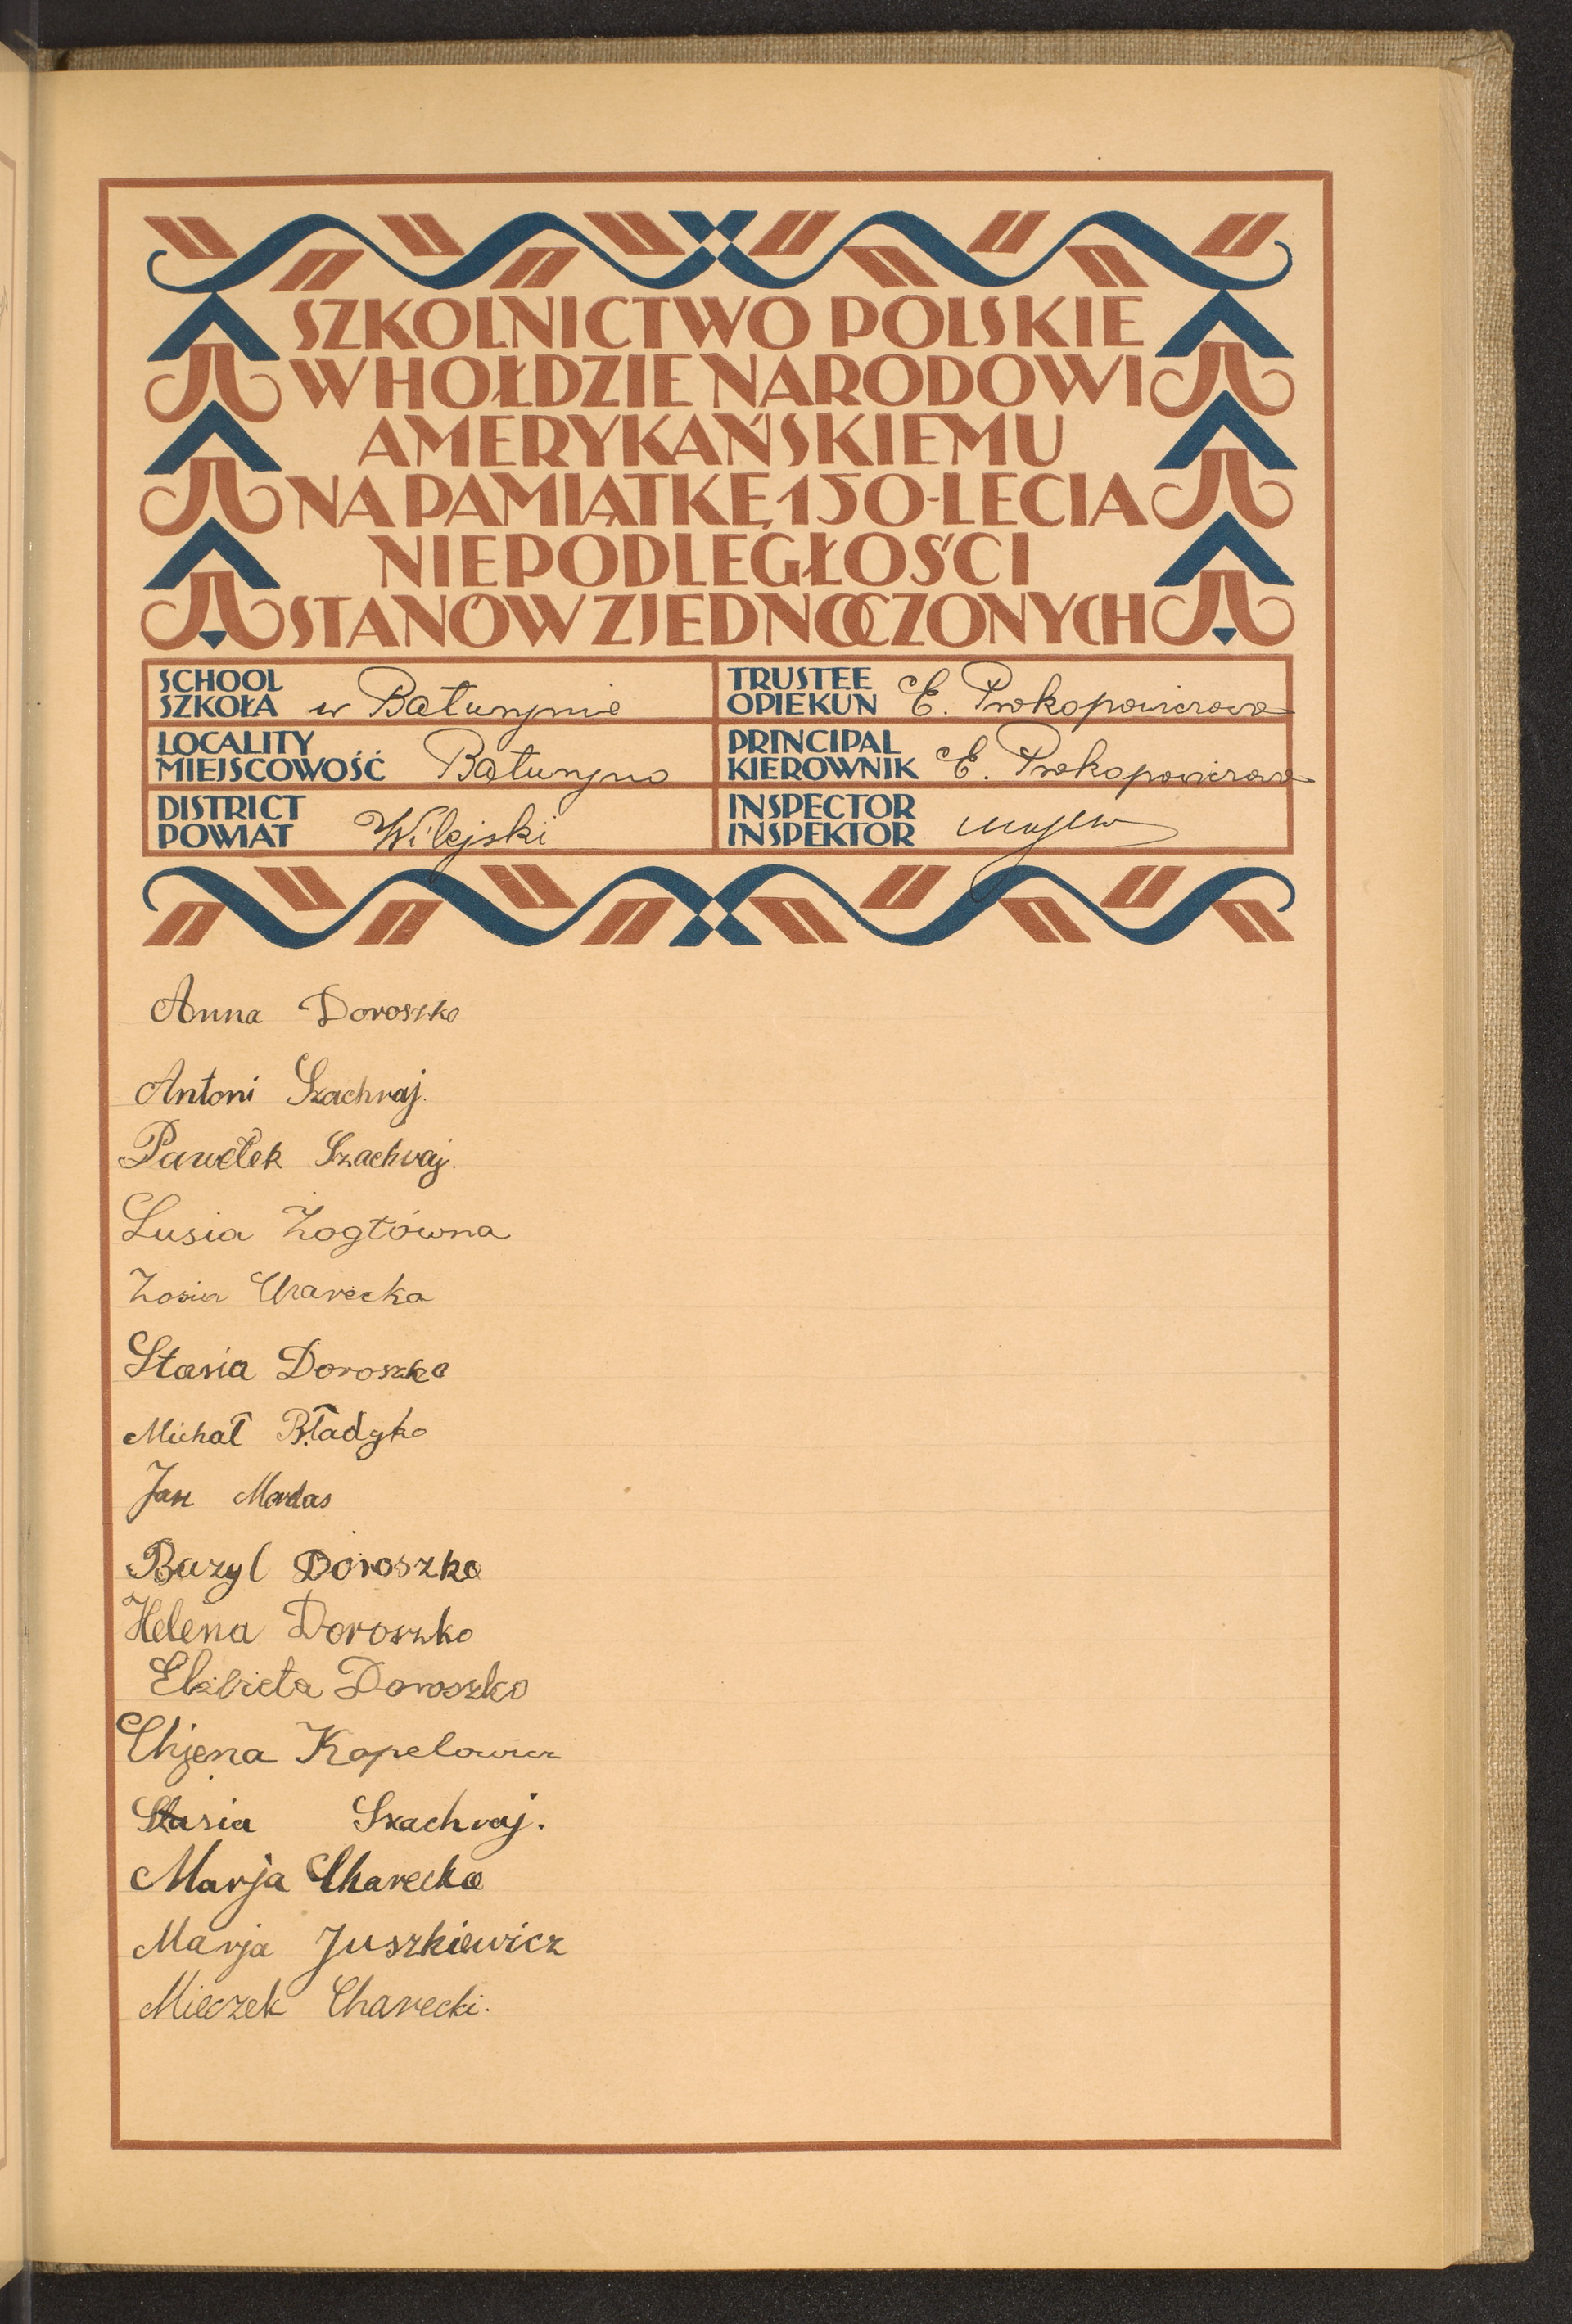 SZKOLNICTWO POLSKIE
W HOŁDZIE NARODOWI
AMERYKAŃSKIEMU
NA PAMIĄTKĘ 150-LECIA
NIEPODLEGŁOŚCI
STANÓW ZJEDNOCZONYCH
SCHOOL
SZKOŁA w Baturynie
TRUSTEE
OPIEKUN E. Prokopowiczowa
LOCALITY
MIEJSCOWOŚĆ Baturyno
PRINCIPAL
KIEROWNIK E. Prokopowiczowa
DISTRICT
POWIAT Wilejski
INSPECTOR
INSPEKTOR
Anna Doroszko
Antoni Szachraj.
Pawełek Szachraj.
Lusia Żogłówna
Zosia Charecka
Stasia Doroszko
Michał Bładyko
Jan Mordas
Bazyl Doroszko
Helena Doroszko
Elżbieta Doroszko
Chjena Kopelowicz
Stasia Szachraj.
Marja Charecka
Marja Juszkiewicz
Mieczek Charecki.